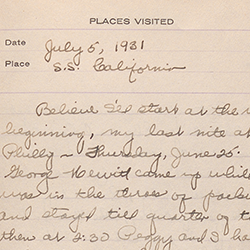 PLACES VISITED
Date July 5, 1931
Place S.S. California
Believe I'll start at the
beginning, my last nite at
Philly - Thursday, June 25.
George Hewitt came up while
was in the throes of packing
and stayed till quarter of
then at 2:30 Peggy and I